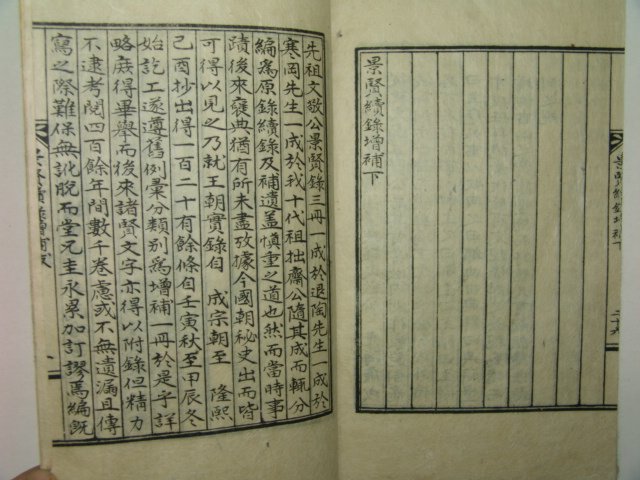 景賢續錄增補下
景賢續錄增補下
先祖文敬公景賢錄三冊一成於退陶先生一成於
寒岡先生一成於我十代祖拙齋公隨其成而輒分
編爲原錄續錄及補遺盖愼重之道也然而當時事
蹟後來褒典猶有所未盡放據今國朝秘史出而皆
可得以見之乃就王朝實錄自 成宗朝至 隆熙
己酉抄出得一百二十有餘條自壬寅秋至甲辰冬
始訖工遂遵舊例彙分類別爲增補一冊於是乎詳
略庶得畢擧而後來諸賢文字亦得以附錄但精力
不逮考閱四百餘年間數千卷慮或不無遺漏且傳
寫之際難保無訛脫而堂兄圭永累加訂謬爲編旣